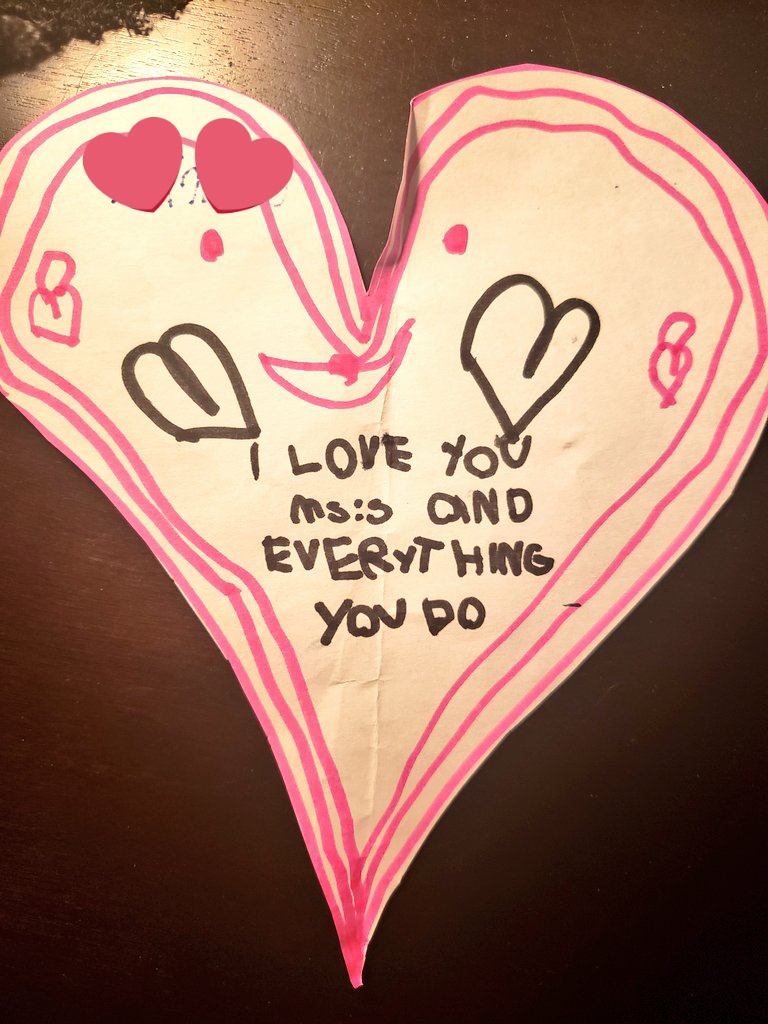 I LOVE YOU
ms:s AND
EVERYTHING
YOU DO